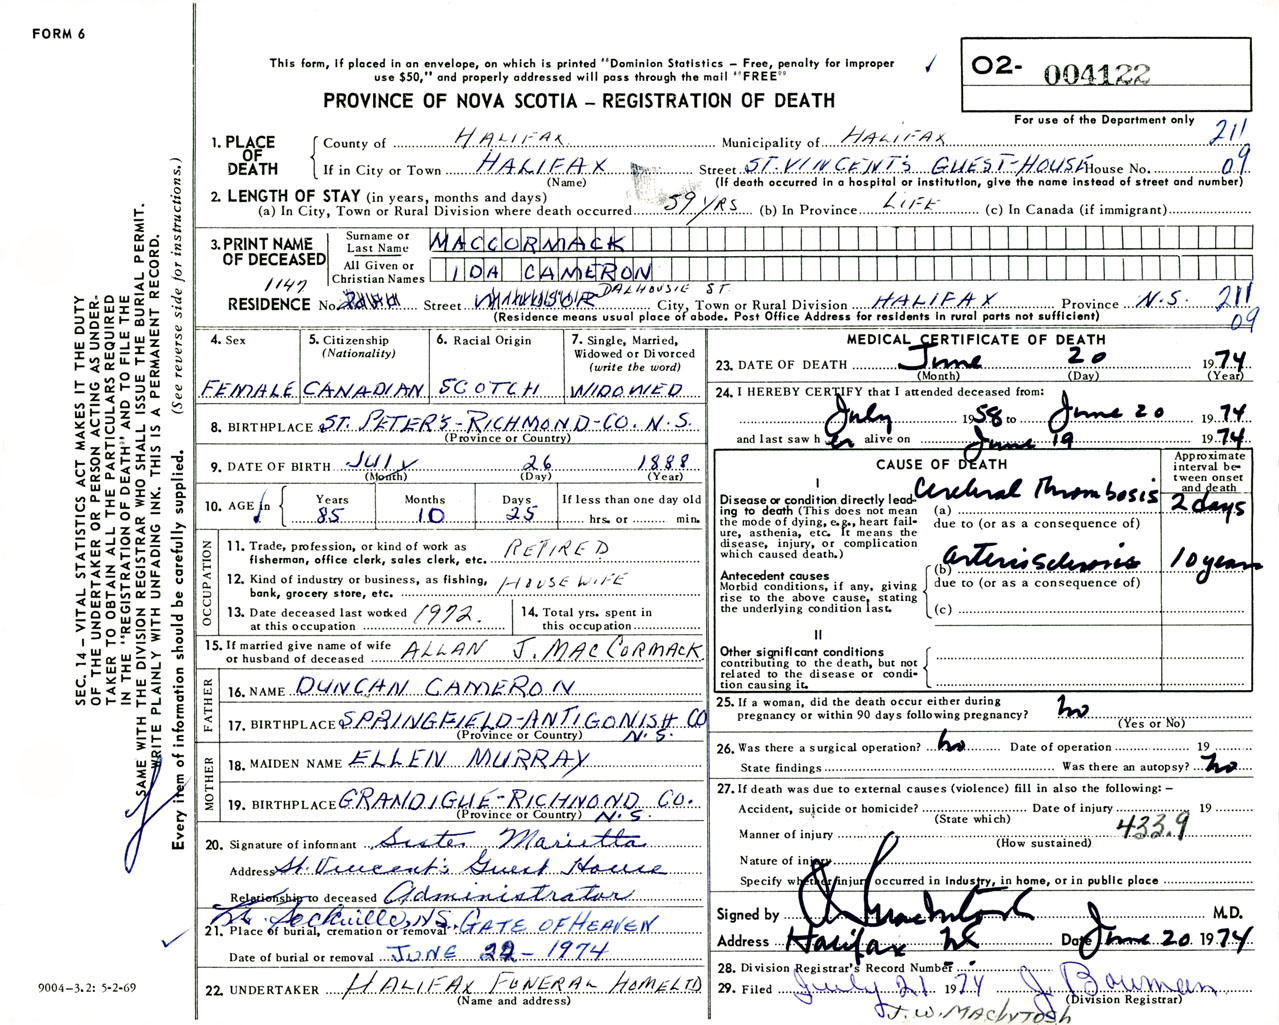 FORM 6
This form, if placed in an envelope, on which is printed "Dominion Statistics – Free, penalty for improper
use $50," and properly addressed will pass through the mail "FREE"
PROVINCE OF NOVA SCOTIA – REGISTRATION OF DEATH
O2- 004122
For use of the Department only
211
09
1. PLACE OF DEATH
County of HALIFAX Municipality of HALIFAX
If in City or Town HALIFAX Street ST. VINCENT'S GUEST-HOUSE House No.
(Name) (If death occurred in a hospital or institution, give the name instead of street and number)
2. LENGTH OF STAY (in years, months and days)
(a) In City, Town or Rural Division where death occurred 59 YRS (b) In Province LIFE (c) In Canada (if immigrant)
3. PRINT NAME OF DECEASED
Surname or Last Name MACCORMACK
All Given or Christian Names IDA CAMERON
1147 DALHOUSIE ST.
RESIDENCE No. Street WINDSOR City, Town or Rural Division HALIFAX Province N.S. 211
(Residence means usual place of abode. Post Office Address for residents in rural parts not sufficient) 09
4. Sex FEMALE
5. Citizenship (Nationality) CANADIAN
6. Racial Origin SCOTCH
7. Single, Married, Widowed or Divorced (write the word) WIDOWED
8. BIRTHPLACE ST. PETER'S-RICHMOND-CO. N.S.
(Province or Country)
9. DATE OF BIRTH JULY 26 1888
(Month) (Day) (Year)
10. AGE in Years 85 Months 10 Days 25 If less than one day old hrs. or min.
OCCUPATION
11. Trade, profession, or kind of work as fisherman, office clerk, sales clerk, etc. RETIRED
12. Kind of industry or business, as fishing, bank, grocery store, etc. HOUSEWIFE
13. Date deceased last worked at this occupation 1972.
14. Total yrs. spent in this occupation
15. If married give name of wife or husband of deceased ALLAN J. MACCORMACK
FATHER
16. NAME DUNCAN CAMERON
17. BIRTHPLACE SPRINGFIELD-ANTIGONISH CO N.S.
(Province or Country)
MOTHER
18. MAIDEN NAME ELLEN MURRAY
19. BIRTHPLACE GRANDIGUE-RICHMOND CO. N.S.
(Province or Country)
20. Signature of informant Sister Marietta
Address St. Vincent's Guest House
Relationship to deceased Administrator
Sackville, N.S. GATE OF HEAVEN
21. Place of burial, cremation or removal
Date of burial or removal JUNE 22 - 1974
22. UNDERTAKER HALIFAX FUNERAL HOME LTD
(Name and address)
MEDICAL CERTIFICATE OF DEATH
23. DATE OF DEATH June 20 1974
(Month) (Day) (Year)
24. I HEREBY CERTIFY that I attended deceased from:
July 1958 to June 20 1974
and last saw h er alive on June 19 1974
CAUSE OF DEATH
Approximate interval between onset and death
I
Disease or condition directly leading to death (This does not mean the mode of dying, e.g., heart failure, asthenia, etc. It means the disease, injury, or complication which caused death.)
(a) Cerebral Thrombosis 2 days
due to (or as a consequence of)
Antecedent causes
Morbid conditions, if any, giving rise to the above cause, stating the underlying condition last.
(b) Arteriosclerosis 10 years
due to (or as a consequence of)
(c)
II
Other significant conditions
contributing to the death, but not related to the disease or condition causing it.
25. If a woman, did the death occur either during pregnancy or within 90 days following pregnancy? no
(Yes or No)
26. Was there a surgical operation? no Date of operation 19
State findings Was there an autopsy? no
27. If death was due to external causes (violence) fill in also the following: –
Accident, suicide or homicide? Date of injury 19
(State which)
433.9
Manner of injury
(How sustained)
Nature of injury
Specify whether injury occurred in industry, in home, or in public place
Signed by MacIntosh M.D.
Address Halifax NS Date June 20 1974
28. Division Registrar's Record Number
29. Filed July 21 1974 J. Bowman
(Division Registrar)
J.W. MACINTOSH
SEC. 14 – VITAL STATISTICS ACT MAKES IT THE DUTY
OF THE UNDERTAKER OR PERSON ACTING AS UNDER-
TAKER TO OBTAIN ALL THE PARTICULARS REQUIRED
IN THE "REGISTRATION OF DEATH" AND TO FILE THE
SAME WITH THE DIVISION REGISTRAR WHO SHALL ISSUE THE BURIAL PERMIT.
WRITE PLAINLY WITH UNFADING INK. THIS IS A PERMANENT RECORD.
Every item of information should be carefully supplied. (See reverse side for instructions.)
9004-3.2: 5-2-69